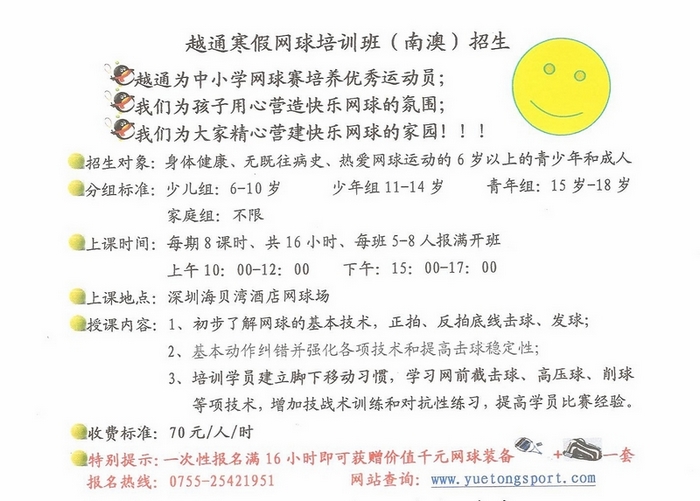 越通寒假网球培训班（南澳）招生
越通为中小学网球赛培养优秀运动员；
我们为孩子用心营造快乐网球的氛围；
我们为大家精心营建快乐网球的家园！！！
招生对象：身体健康、无既往病史、热爱网球运动的 6 岁以上的青少年和成人
分组标准：少儿组：6-10 岁 少年组 11-14 岁 青年组：15 岁-18 岁
家庭组：不限
上课时间：每期 8 课时、共 16 小时、每班 5-8 人报满开班
上午 10：00-12：00 下午：15：00-17：00
上课地点：深圳海贝湾酒店网球场
授课内容：1、初步了解网球的基本技术，正拍、反拍底线击球、发球；
2、基本动作纠错并强化各项技术和提高击球稳定性；
3、培训学员建立脚下移动习惯，学习网前截击球、高压球、削球
等项技术，增加技战术训练和对抗性练习，提高学员比赛经验。
收费标准：70 元/人/时
特别提示：一次性报名满 16 小时即可获赠价值千元网球装备 + 一套
报名热线：0755-25421951 网站查询：www.yuetongsport.com